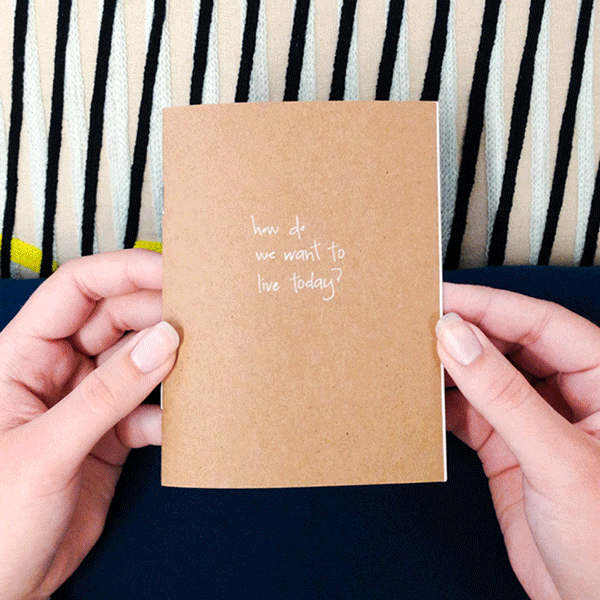 how do
we want to
live today?